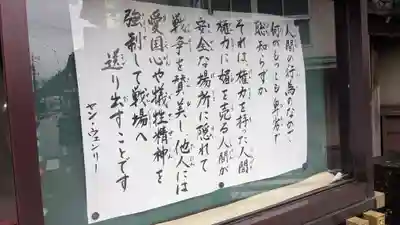 人間の行為のなかで、
何がもっとも卑劣で
恥知らずか
それは、権力を持った人間
権力に媚を売る人間が
安全な場所に隠れて
戦争を賛美し他人には
愛国心や犠牲精神を
強制して戦場へ
送り出すことです
ヤン・ウェンリー